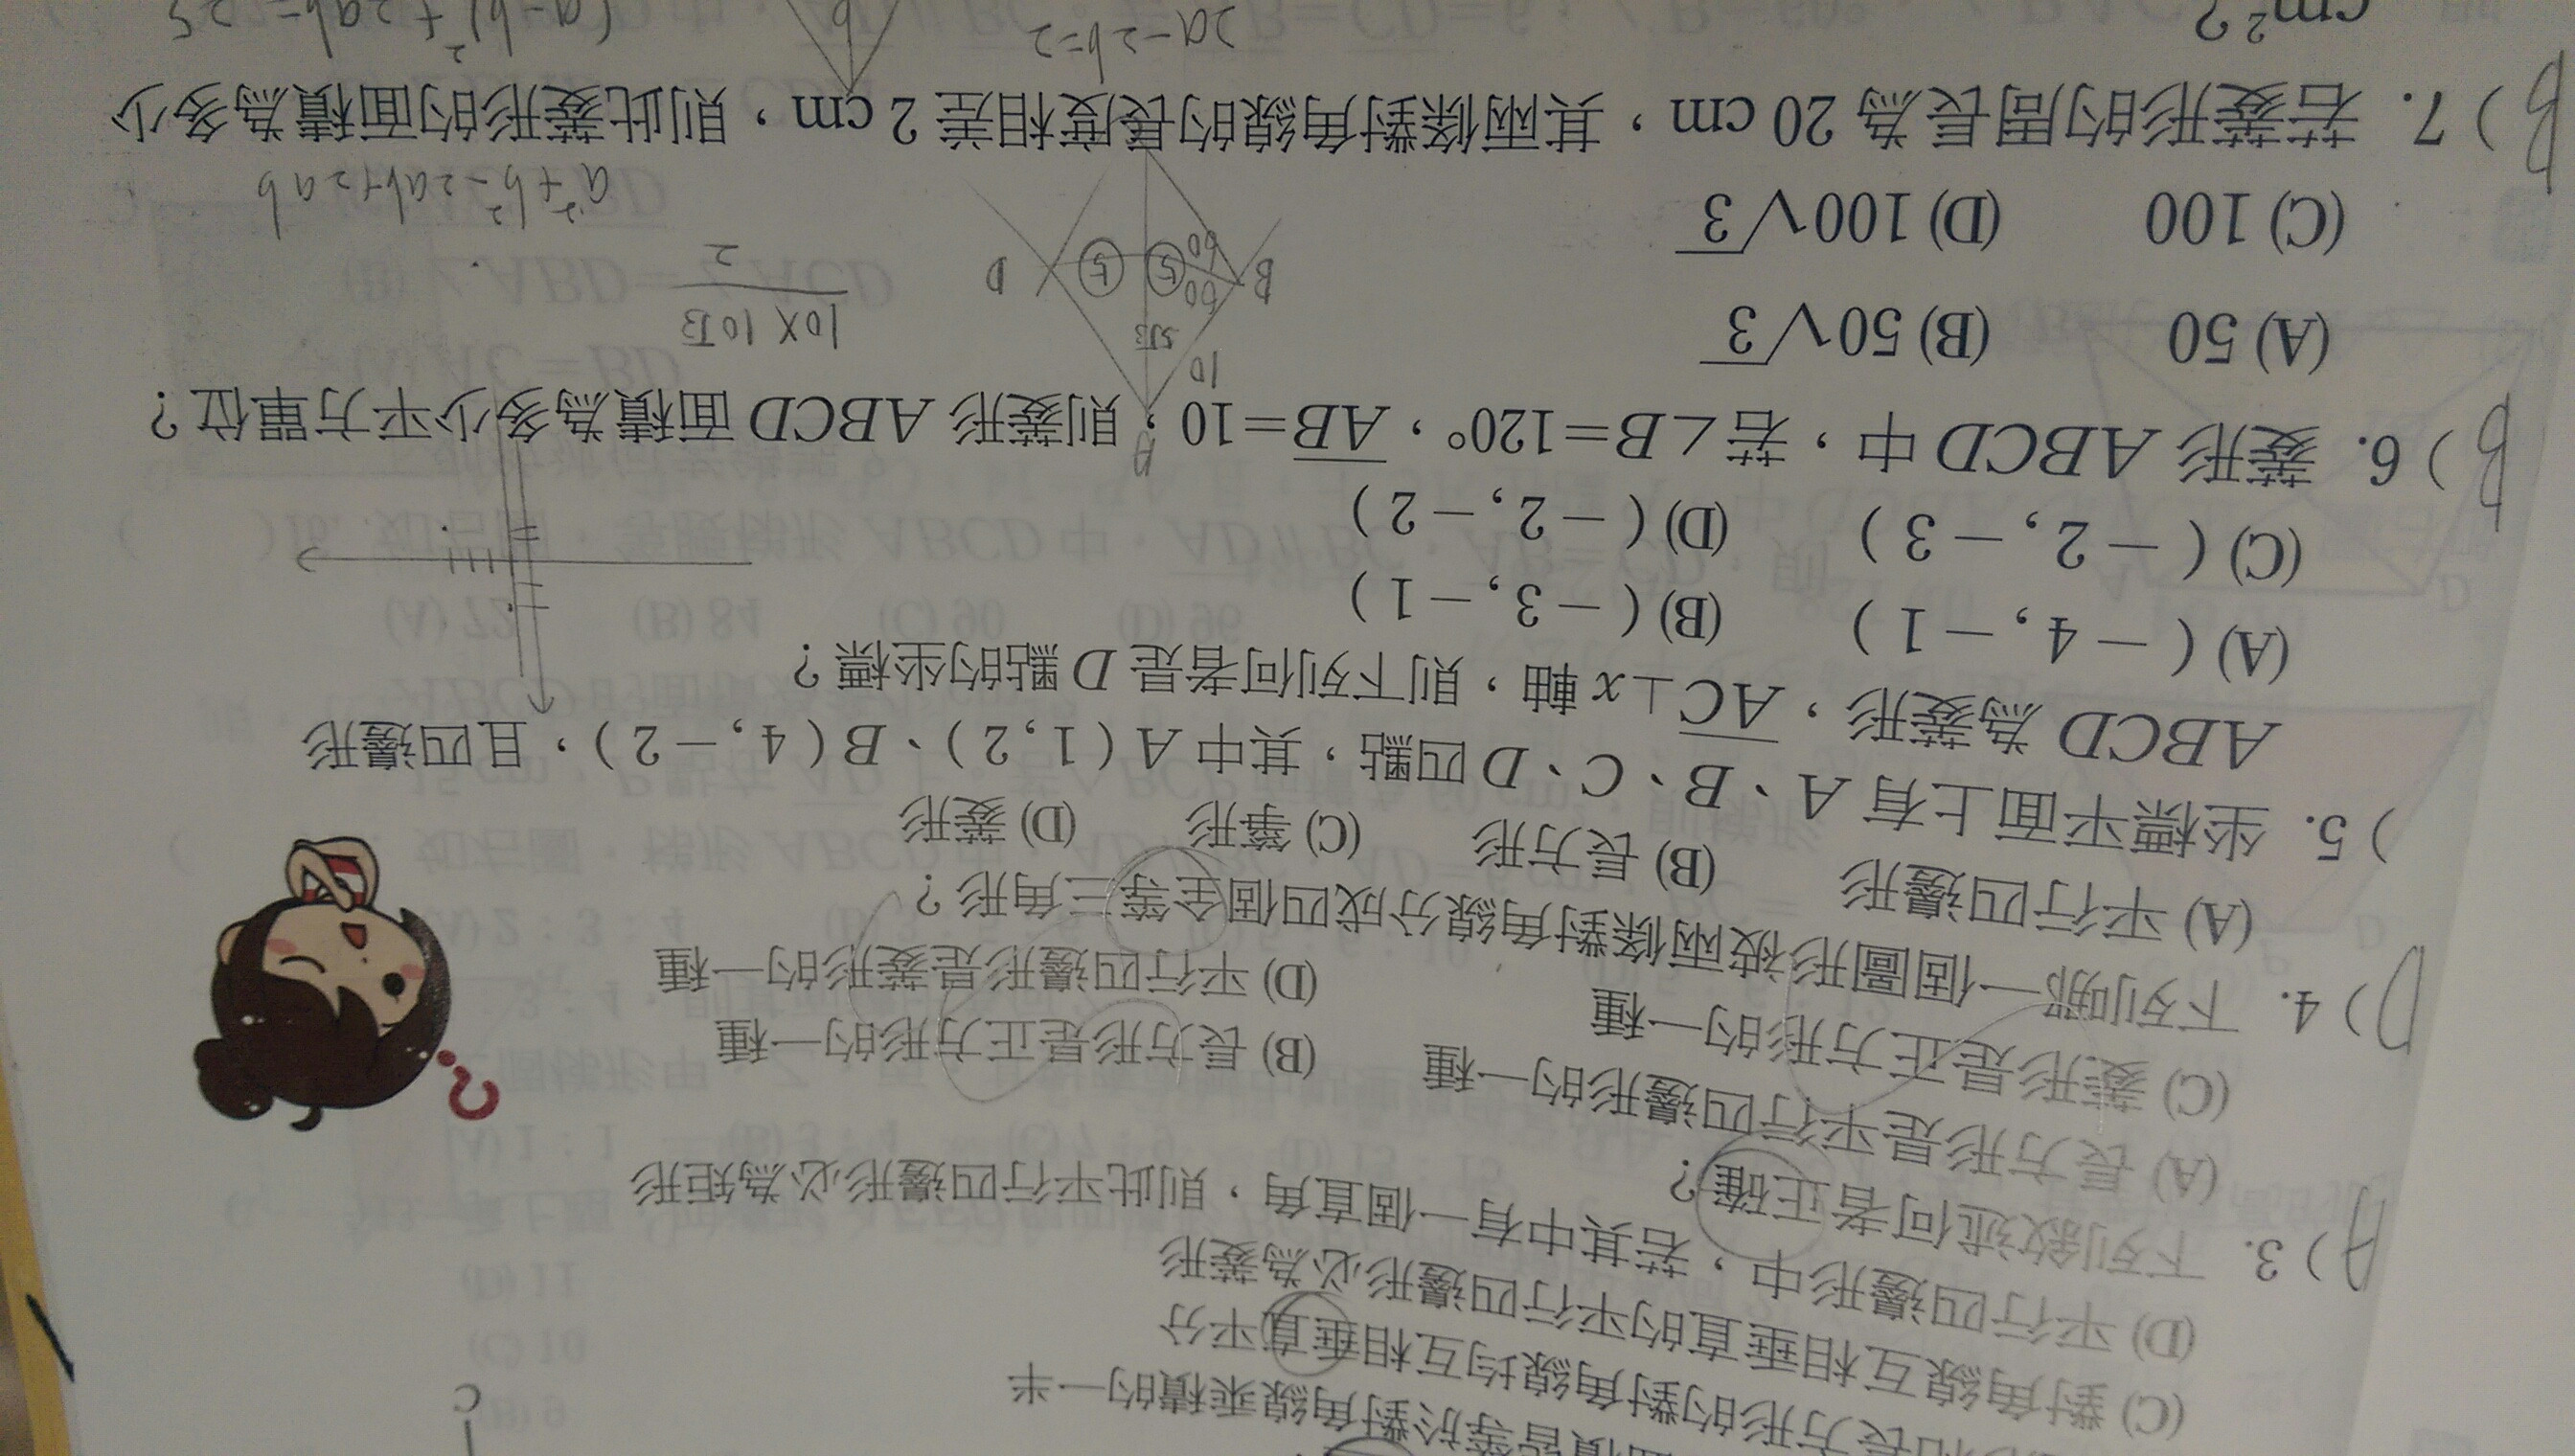 積皆等於對角線乘積的一半
和長方形的對角線均互相垂直平分
(C) 對角線互相垂直的平行四邊形必為菱形
(D) 平行四邊形中，若其中有一個直角，則此平行四邊形必為矩形
A ) 3. 下列敘述何者正確？
(A) 長方形是平行四邊形的一種 (B) 長方形是正方形的一種
(C) 菱形是正方形的一種 (D) 平行四邊形是菱形的一種
D ) 4. 下列哪一個圖形被兩條對角線分成四個全等三角形？
(A) 平行四邊形 (B) 長方形 (C) 箏形 (D) 菱形
) 5. 坐標平面上有 A、B、C、D 四點，其中 A ( 1 , 2 )、B ( 4 , －2 )，且四邊形
ABCD 為菱形，AC⊥x 軸，則下列何者是 D 點的坐標？
(A) ( －4 , －1 ) (B) ( －3 , －1 )
(C) ( －2 , －3 ) (D) ( －2 , －2 )
B ) 6. 菱形 ABCD 中，若∠B＝120°，AB＝10，則菱形 ABCD 面積為多少平方單位？
(A) 50 (B) 50√3
(C) 100 (D) 100√3
10
5√3
B 60 60 5 5 D
10×10√3
2
a²+b²-2ab+2ab
B ) 7. 若菱形的周長為 20 cm，其兩條對角線的長度相差 2 cm，則此菱形的面積為多少
cm²？
2a-2b=2
b
(a-b)²+2ab=25
C